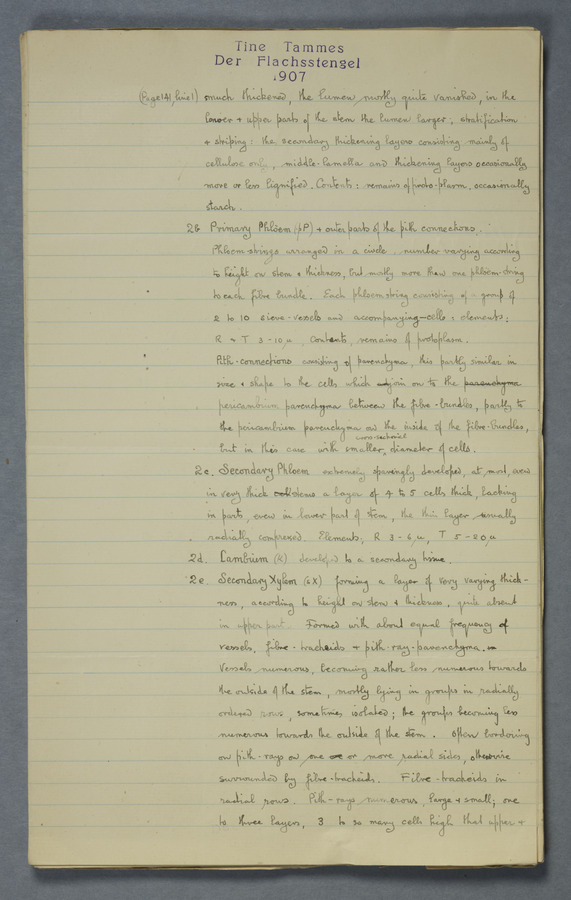 Tine Tammes
Der Flachsstengel
1907
(Page 141, line 1) much thickened, the lumen mostly quite vanished, in the
lower + upper parts of the stem the lumen larger; stratification
+ striping: the secondary thickening layers consisting mainly of
cellulose only, middle-lamella and thickening layers occasionally
more or less lignified. Contents: remains of proto-plasm, occasionally
starch.
2b Primary Phloem (pP) + outer parts of the pith connections.
Phloem-strings arranged in a circle number varying according
to height on stem + thickness, but mostly more than one phloem-string
to each fibre bundle. Each phloem string consisting of group of
2 to 10 sieve-vessels and accompanying-cells. elements:
R + T 3-10 µ, Contents, remains of protoplasm.
Pith-connections consisting of parenchyma, this partly similar in
size + shape to the cells which adjoin on to the parenchyma
pericambium parenchyma between the fibre-bundles, partly to
the pericambium parenchyma on the inside of the fibre-bundles,
cross-sectional
but in this case with smaller, diameter of cells.
2c. Secondary Phloem extremely sparingly developed, at most, even
in very thick stems a layer of 4 to 5 cells thick, lacking
in parts, even in lower part of stem, the thin layer usually
radially compressed. Elements, R 3-6 µ, T 5-20 µ
2d. Cambium (K) developed to a secondary tissue.
2e. Secondary Xylem (sX) forming a layer of very varying thick-
ness, according to height on stem + thickness, quite absent
in upper part. Formed with about equal frequency of
vessels, fibre-tracheids + pith-ray-parenchyma.
Vessels numerous, becoming rather less numerous towards
the outside of the stem, mostly lying in groups in radially
ordered rows, sometimes isolated; the groups becoming less
numerous towards the outside of the stem. often bordering
on pith-rays on one or more radial sides, otherwise
surrounded by fibre-tracheids. Fibre-tracheids in
radial rows. Pith-rays numerous, large + small; one
to three layers, 3 to so many cells high that upper +